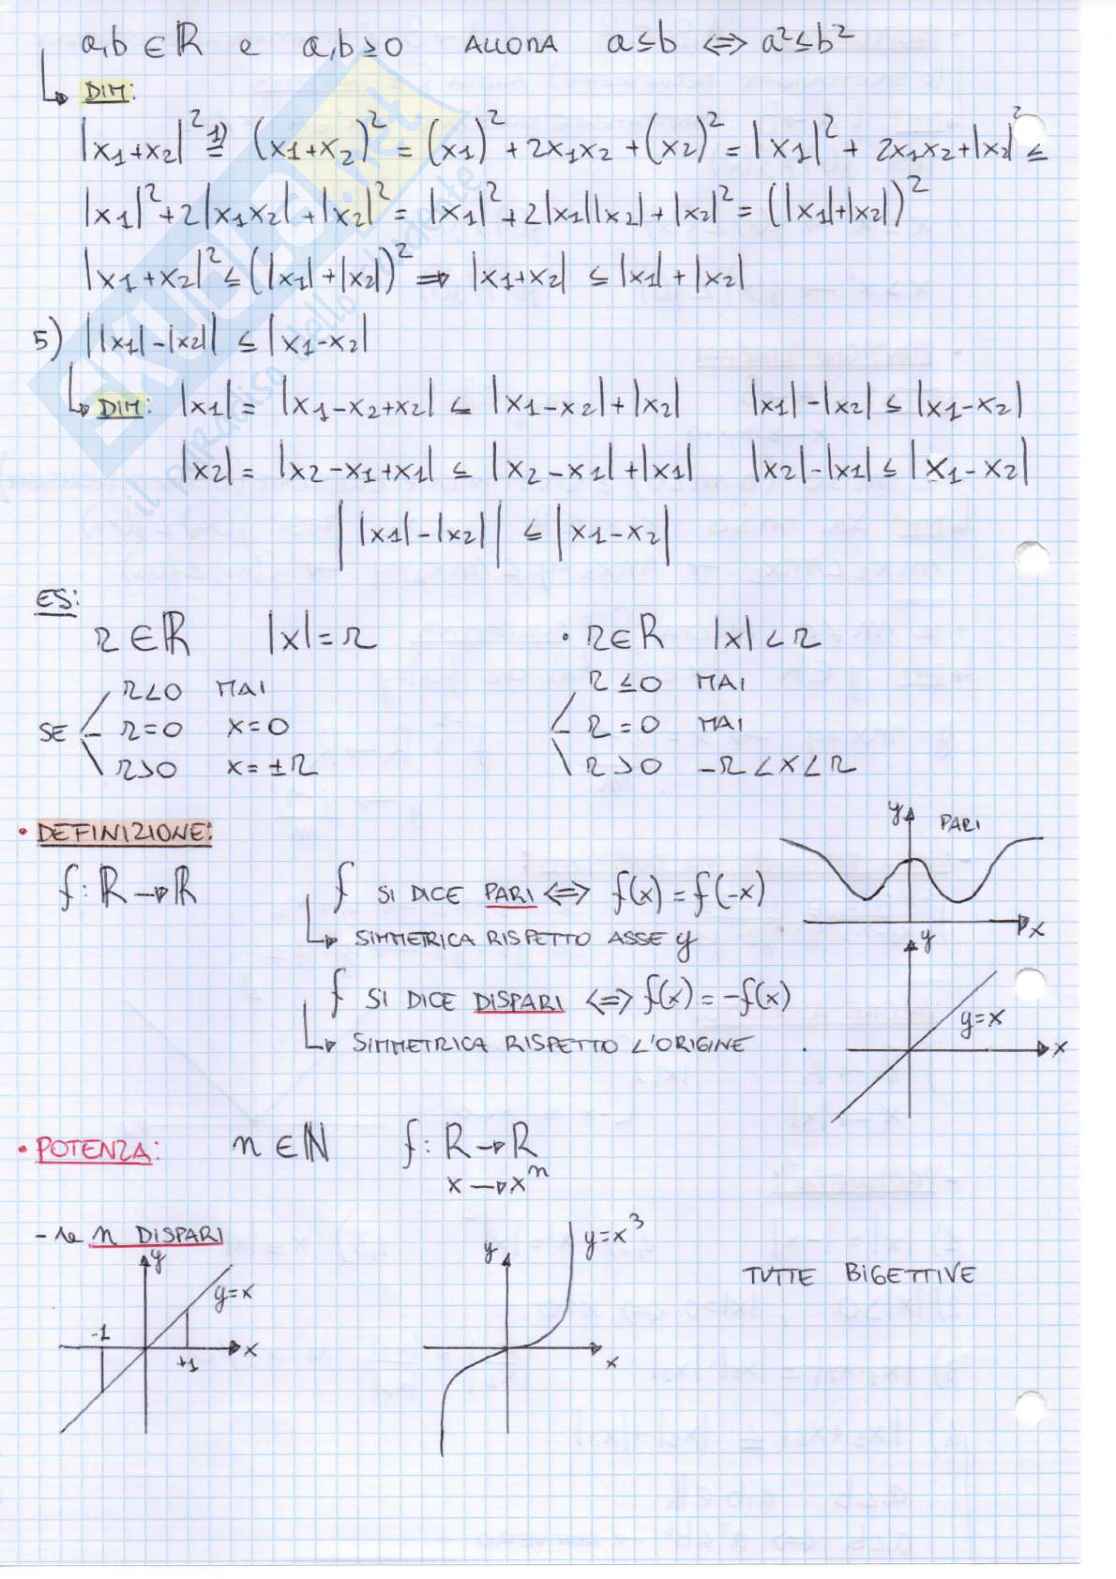 a,b ∈ ℝ e a,b ≥ 0 ALLORA a ≤ b ⟺ a² ≤ b²
DIM:
|x1+x2|² 1)= (x1+x2)² = (x1)² + 2x1x2 + (x2)² = |x1|² + 2x1x2 + |x2|² ≤
|x1|² + 2|x1x2| + |x2|² = |x1|² + 2|x1||x2| + |x2|² = (|x1|+|x2|)²
|x1+x2|² ≤ (|x1|+|x2|)² ⟹ |x1+x2| ≤ |x1| + |x2|
5) ||x1|-|x2|| ≤ |x1-x2|
DIM: |x1| = |x1-x2+x2| ≤ |x1-x2|+|x2| |x1|-|x2| ≤ |x1-x2|
|x2| = |x2-x1+x1| ≤ |x2-x1|+|x1| |x2|-|x1| ≤ |x1-x2|
||x1|-|x2|| ≤ |x1-x2|
ES:
r ∈ ℝ |x| = r • r ∈ ℝ |x| < r
r<0 MAI r ≤ 0 MAI
SE r=0 x=0 r=0 MAI
r>0 x=±r r>0 -r<x<r
• DEFINIZIONE:
y PARI
f: ℝ → ℝ f SI DICE PARI ⟺ f(x) = f(-x)
SIMMETRICA RISPETTO ASSE y
x
y
f SI DICE DISPARI ⟺ f(x) = -f(x)
y=x
SIMMETRICA RISPETTO L'ORIGINE
x
• POTENZA: n ∈ ℕ f: R → R
x → xⁿ
- se n DISPARI
y y=x -1 +1 x
y y=x³ x
TUTTE BIGETTIVE
SKUOLA.net
il paradiso dello studente